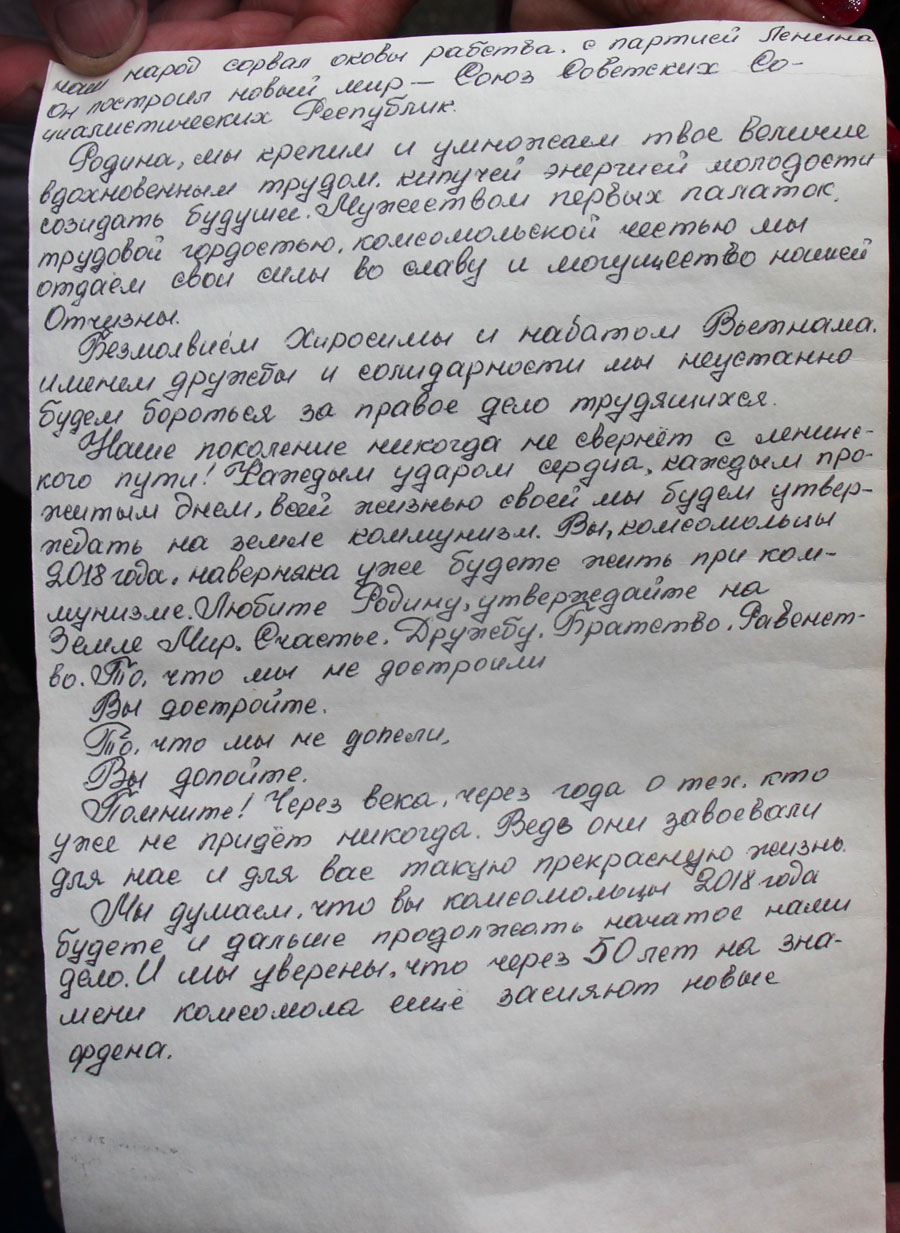 наш народ сорвал оковы рабства. с партией Ленина
он построил новый мир — Союз Советских Со-
циалистических Республик.
Родина, мы крепим и умножаем твое величие
вдохновенным трудом. кипучей энергией молодости
созидать будущее. Мужеством первых палаток,
трудовой гордостью, комсомольской честью мы
отдаём свои силы во славу и могущество нашей
Отчизны.
Безмолвием Хиросимы и набатом Вьетнама.
именем дружбы и солидарности мы неустанно
будем бороться за правое дело трудящихся.
Наше поколение никогда не свернёт с ленинс-
кого пути! Каждым ударом сердца, каждым про-
житым днем, всей жизнью своей мы будем утвер-
ждать на земле коммунизм. Вы, комсомольцы
2018 года, наверняка уже будете жить при ком-
мунизме. Любите Родину, утверждайте на
Земле Мир. Счастье. Дружбу. Братство. Равенст-
во. То, что мы не достроили
Вы достройте.
То, что мы не допели,
Вы допойте.
Помните! Через века, через года о тех, кто
уже не придёт никогда. Ведь они завоевали
для нас и для вас такую прекрасную жизнь.
Мы думаем, что вы комсомольцы 2018 года
будете и дальше продолжать начатое нами
дело. И мы уверены, что через 50 лет на зна-
мени комсомола ещё засияют новые
ордена.